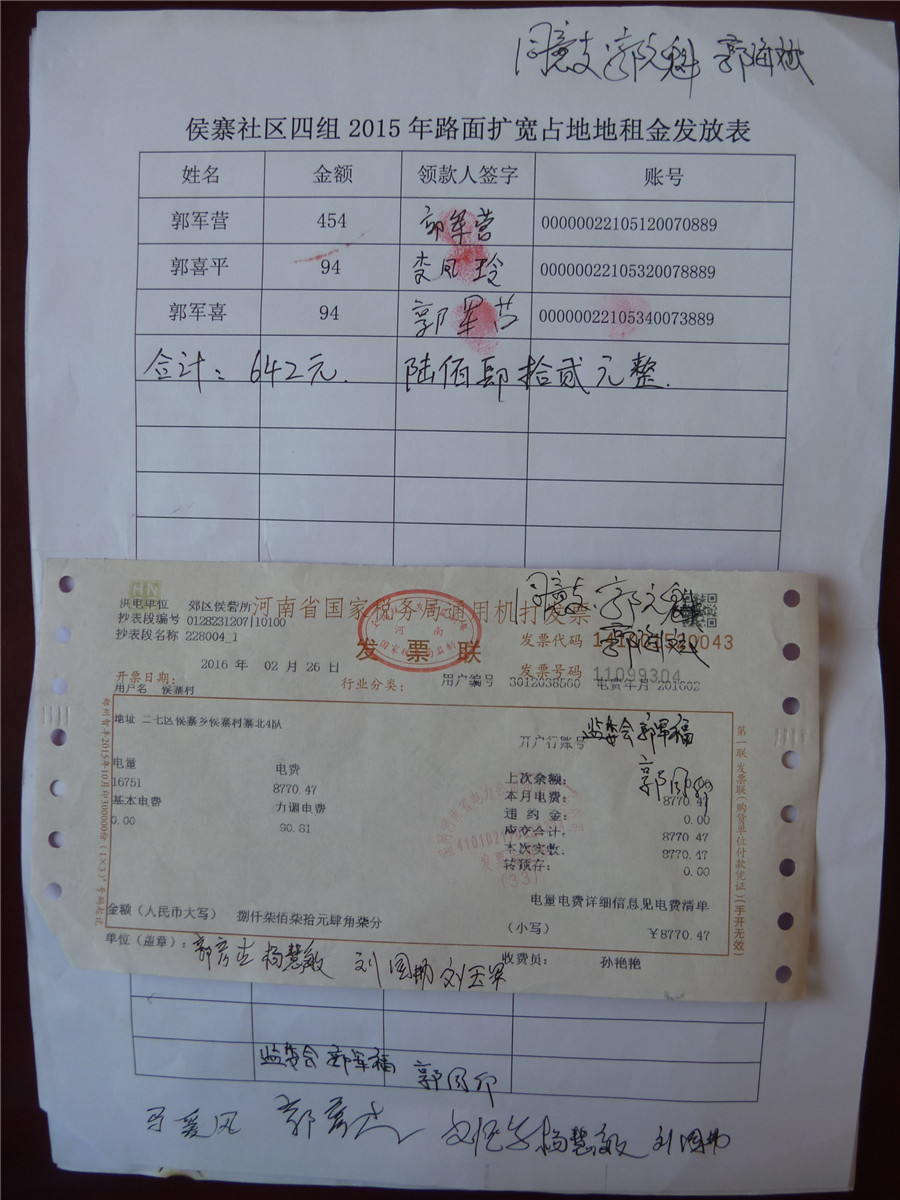 同意支 郭元魁 郭海斌
侯寨社区四组 2015 年路面扩宽占地地租金发放表
姓名 金额 领款人签字 账号
郭军营 454 郭军营 00000022105120070889
郭喜平 94 李凤玲 00000022105320078889
郭军喜 94 郭军 00000022105340073889
合计：642元. 陆佰肆拾贰元整.
HN
同意支. 郭元魁
供电单位 郊区侯砦所 河南省国家税务局通用机打发票
抄表段编号 0128231207110100
郭海斌
抄表段名称 228004_1
发票联
发票代码
2016 年 02 月 26 日
发票号码 11099304
开票日期： 行业分类： 用户编号 3012038560 电费年月 201602
用户名 侯寨村
地址 二七区侯寨乡侯寨村寨北4队
监委会 郭军福
开户行账号
电量 电费
16751 8770.47
基本电费 力调电费
0.00 90.81
上次余额：
本月电费： 8770.47
违约金： 0.00
应交合计： 8770.47
本次实数： 8770.47
转预存： 0.00
电量电费详细信息见电费清单
金额（人民币大写） 捌仟柒佰柒拾元肆角柒分 （小写） ￥8770.47
单位（盖章）： 郭彦杰 杨慧敏 刘国 刘玉 收费员： 孙艳艳
第一联 发票联（购货单位付款凭证）（手开无效）
监委会 郭军福
郭彦杰 杨慧敏 刘国